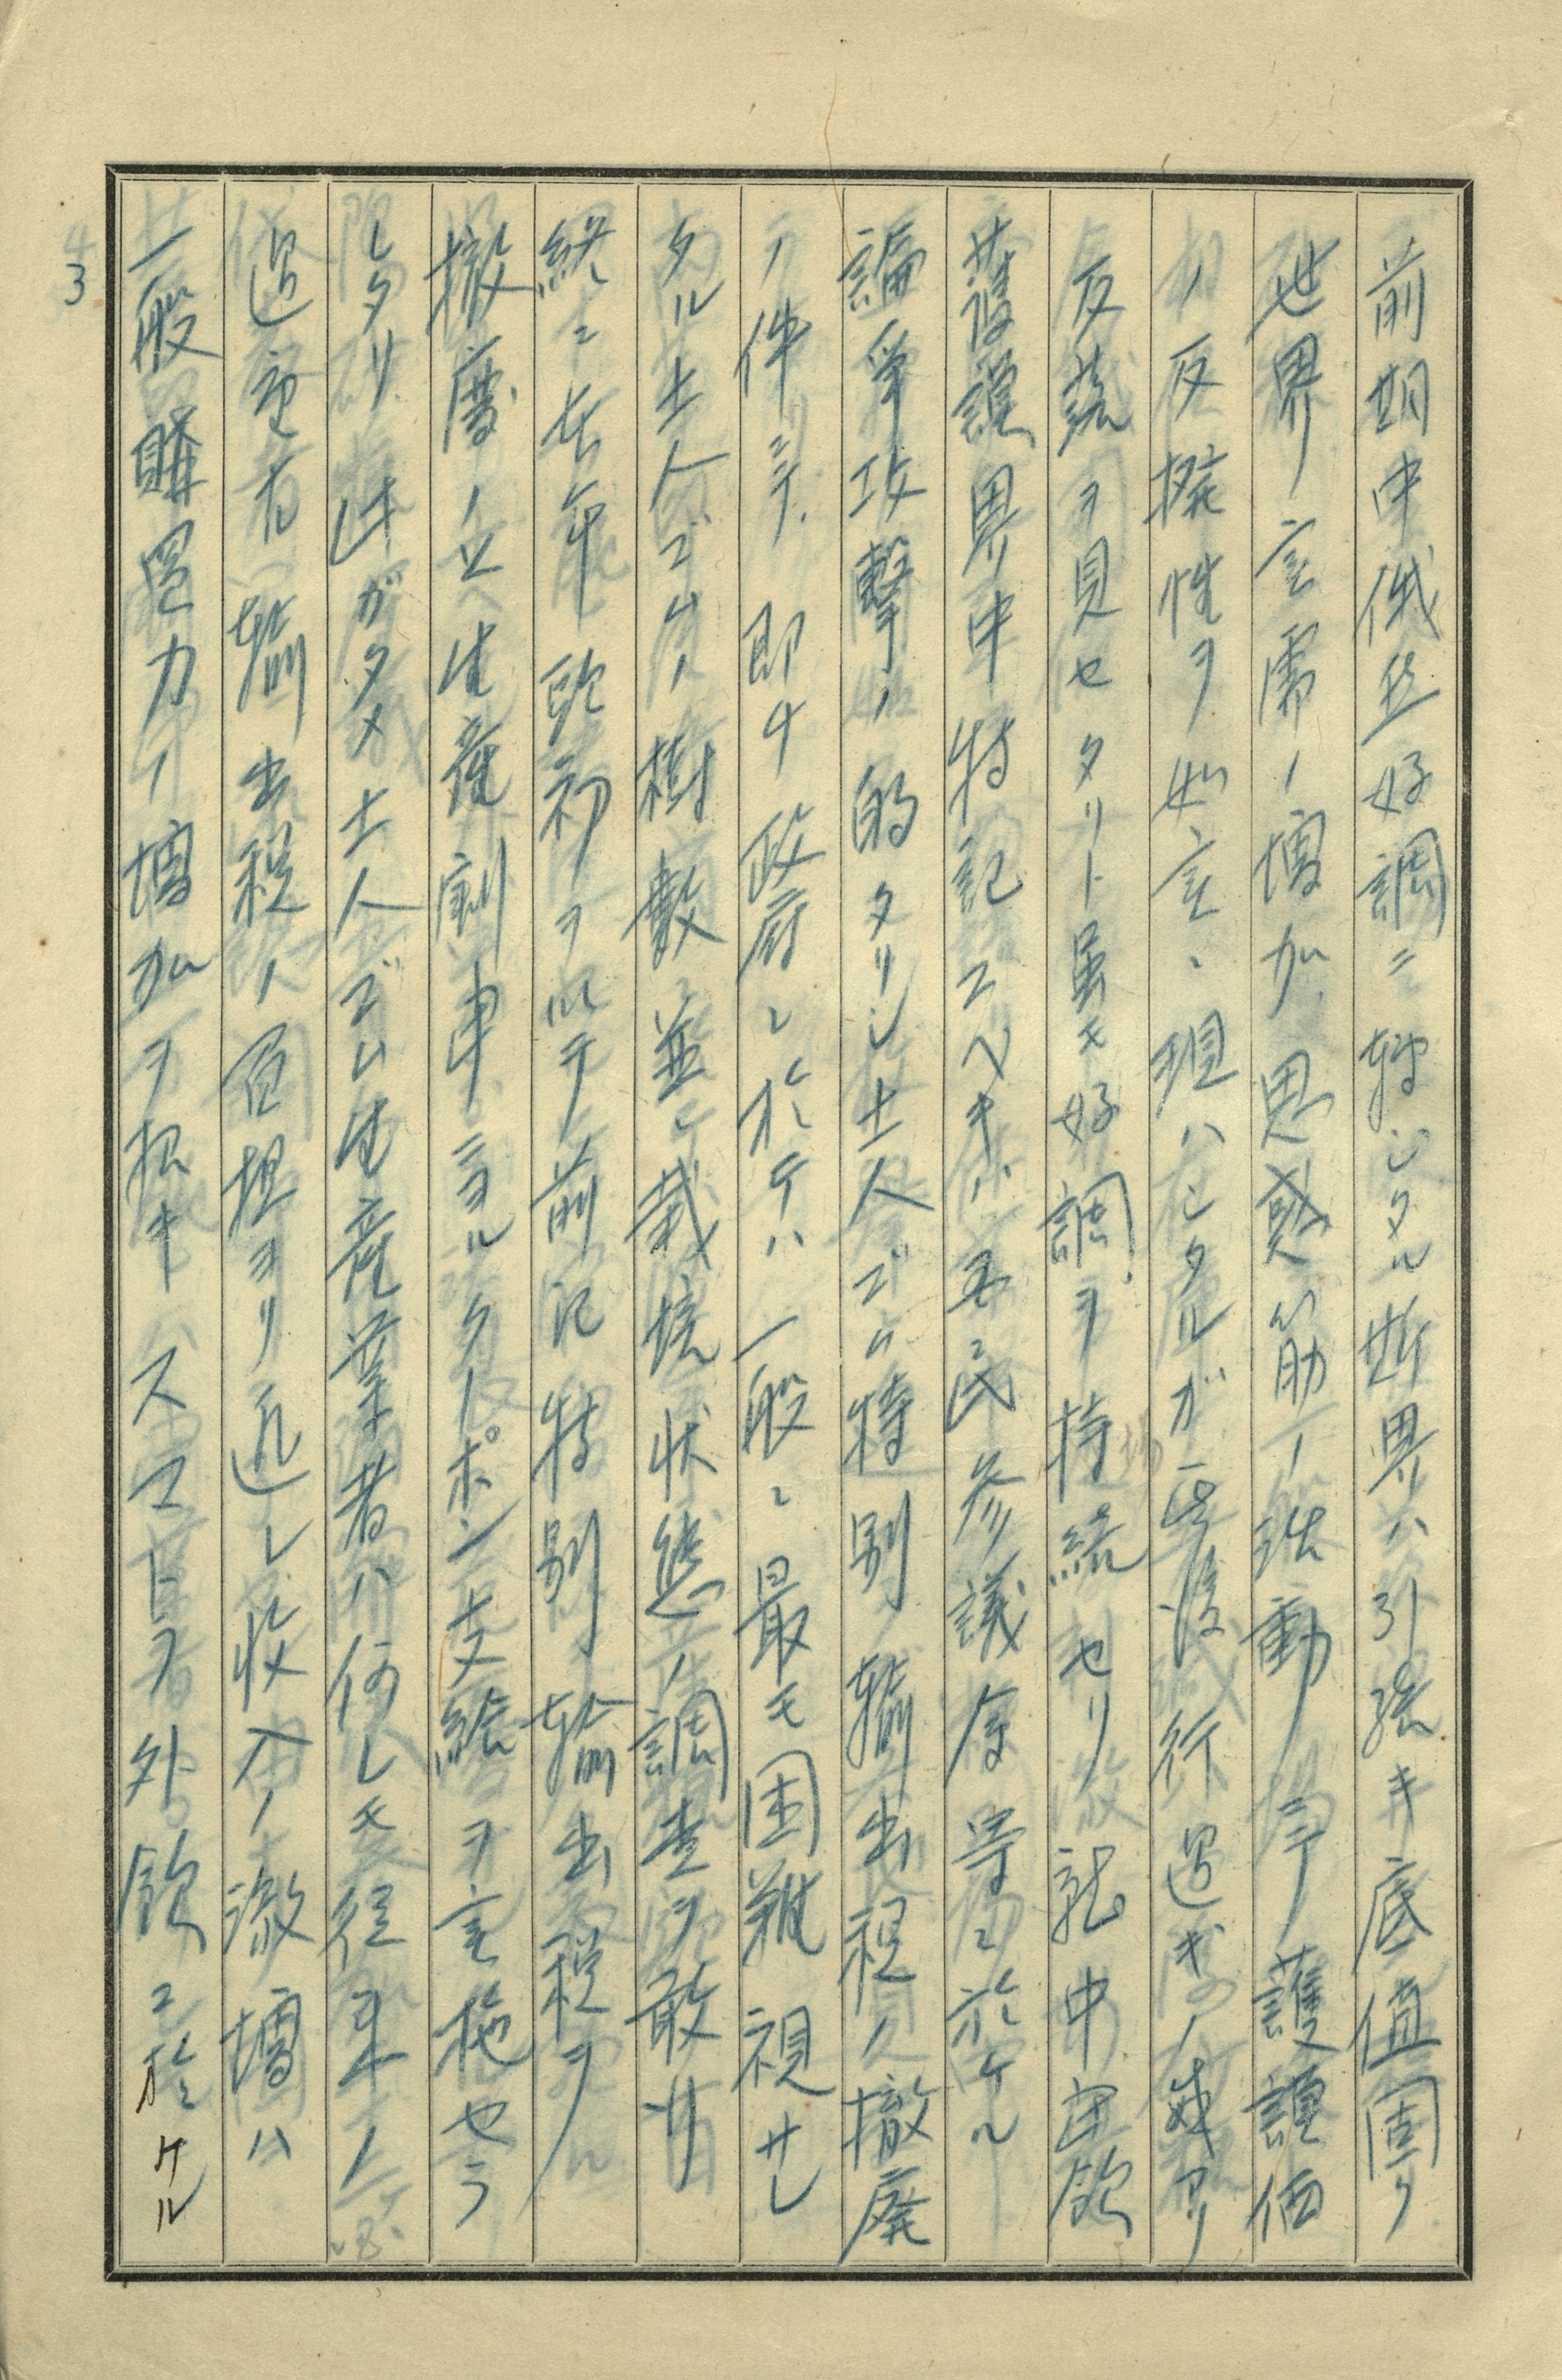 前期中俄然好調ニ転ジタル斯界ハ引強キ底値固リ
世界ノ需ノ増加思惑筋ノ活動ニテ護謨価
ノ反撥性ヲ如実ニ現ハシタルガ其後行過ギノ感アリ
反落ヲ見セタリト虽モ好調ヲ持続セリ就中
護謨界中特記スベキハ民参議会等ニ於ケル
論争攻撃ノ的タリシ土人ゴム特別輸出税ノ撤廃
ノ件ニテ即チ政府ニ於テハ一般ニ最モ困難視サレ
タル土人ゴムノ樹数並ニ栽培状態ノ調査ヲ敢サ
終ニ本年頭初ヲ以テ前記特別輸出税ヲ
撤廃ノ上生産制限ニヨルクーポン支給ヲ実施セラ
レタリ此ガタメ土人ゴム生産業者ハ何レモ従来ノ
過重ナル輸出税ノ負担ヨリ逃レ収入ノ激増ハ
一般購買力ノ増加ヲ招キスマトラ外領ニ於ケル
43